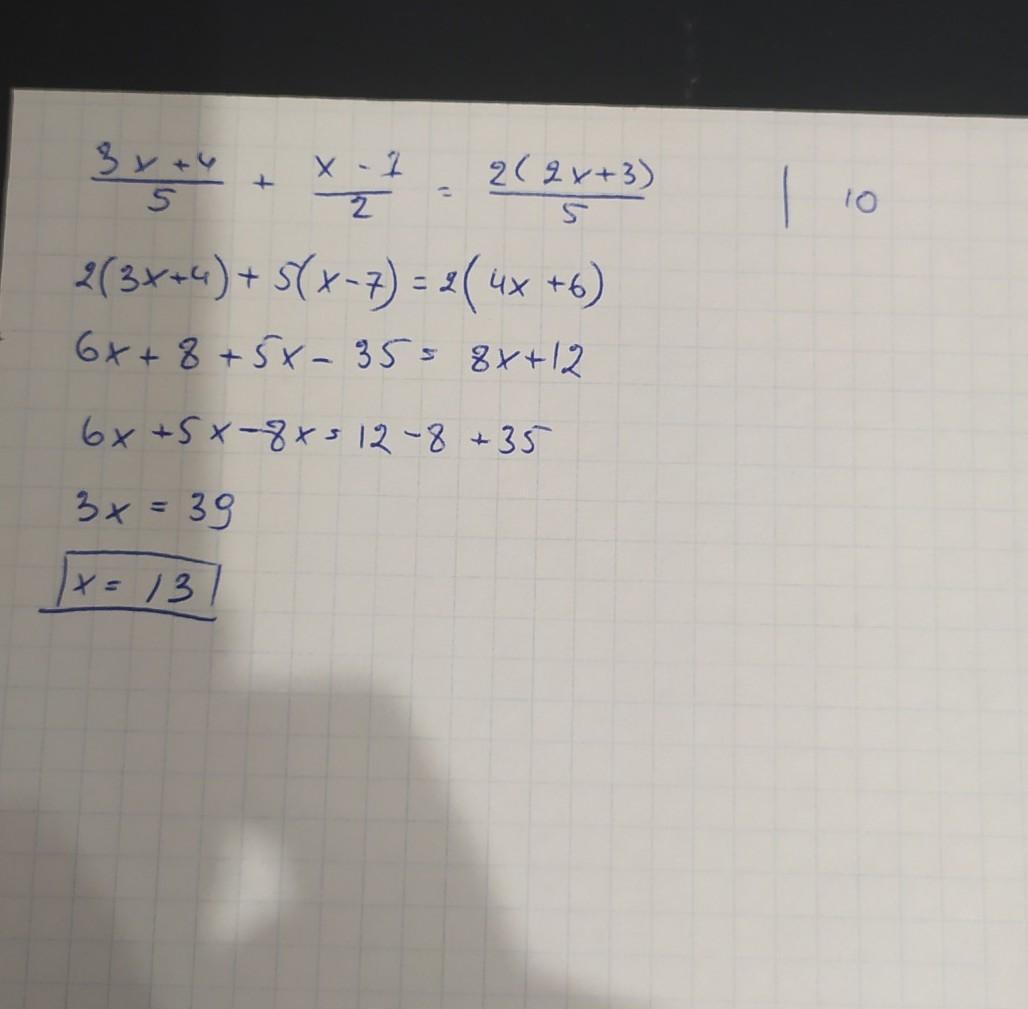 (3x+4)/5 + (x-1)/2 = 2(2x+3)/5 | 10
2(3x+4)+5(x-7)=2(4x+6)
6x+8+5x-35=8x+12
6x+5x-8x=12-8+35
3x=39
x=13